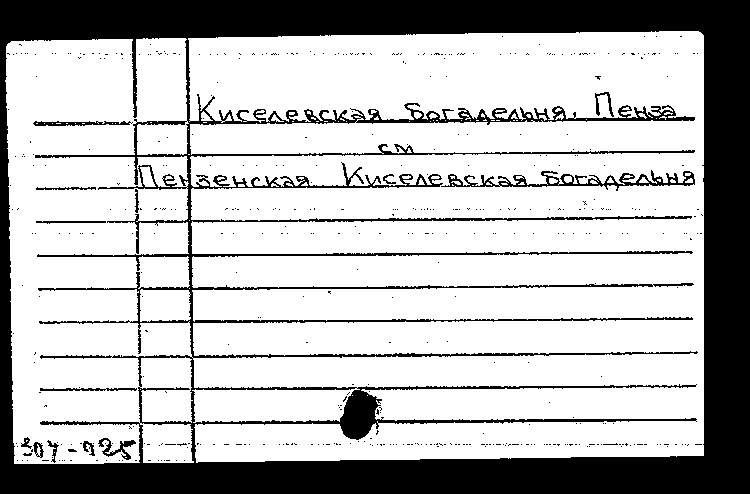 Киселевская богадельня. Пенза
см
Пензенская Киселевская богадельня
304-025